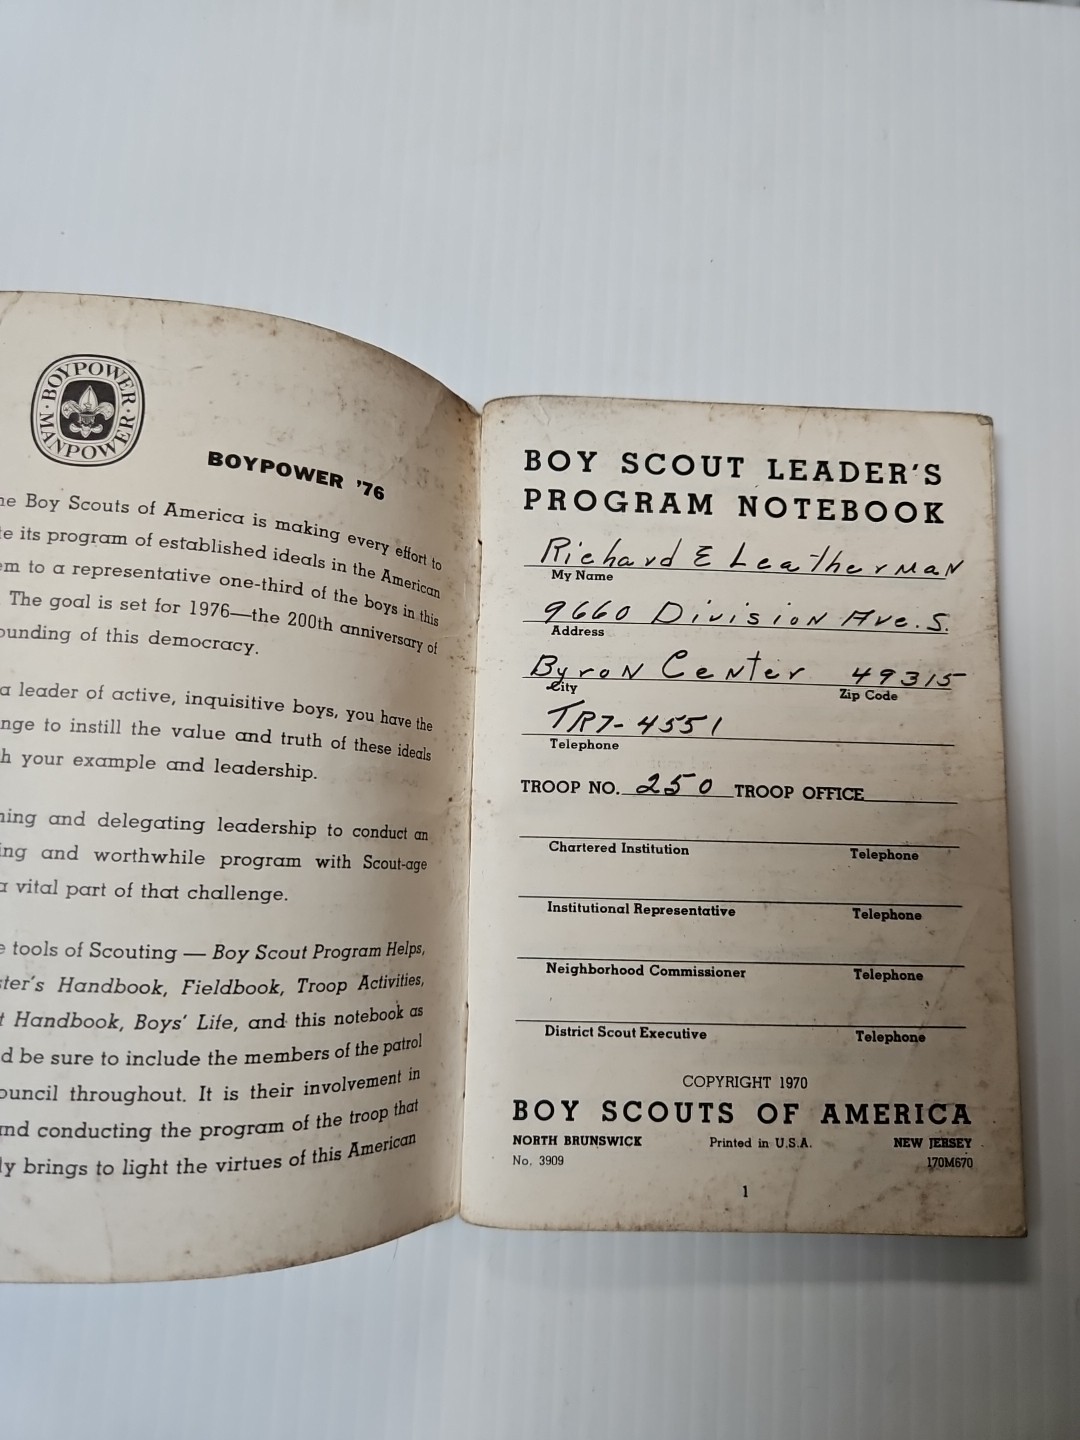 BOYPOWER · MANPOWER ·
BOYPOWER '76
Boy Scouts of America is making every effort to
its program of established ideals in the American
to a representative one-third of the boys in this
The goal is set for 1976—the 200th anniversary of
of this democracy.
a leader of active, inquisitive boys, you have the
to instill the value and truth of these ideals
your example and leadership.
and delegating leadership to conduct an
and worthwhile program with Scout-age
a vital part of that challenge.
tools of Scouting — Boy Scout Program Helps,
Handbook, Fieldbook, Troop Activities,
Handbook, Boys' Life, and this notebook as
be sure to include the members of the patrol
throughout. It is their involvement in
conducting the program of the troop that
brings to light the virtues of this American
BOY SCOUT LEADER'S
PROGRAM NOTEBOOK
Richard E Leatherman
My Name
9660 Division Ave. S.
Address
Byron Center 49315
City Zip Code
TR7-4551
Telephone
TROOP NO. 250 TROOP OFFICE
Chartered Institution Telephone
Institutional Representative Telephone
Neighborhood Commissioner Telephone
District Scout Executive Telephone
COPYRIGHT 1970
BOY SCOUTS OF AMERICA
NORTH BRUNSWICK Printed in U.S.A. NEW JERSEY
No. 3909 170M670
1